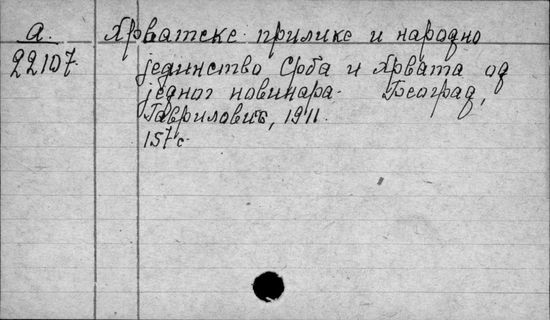 А.
22107.
Хрватске прилике и народно
јединство Срба и Хрвата од
једног новинара. Београд,
Гавриловић, 1911.
157 с.